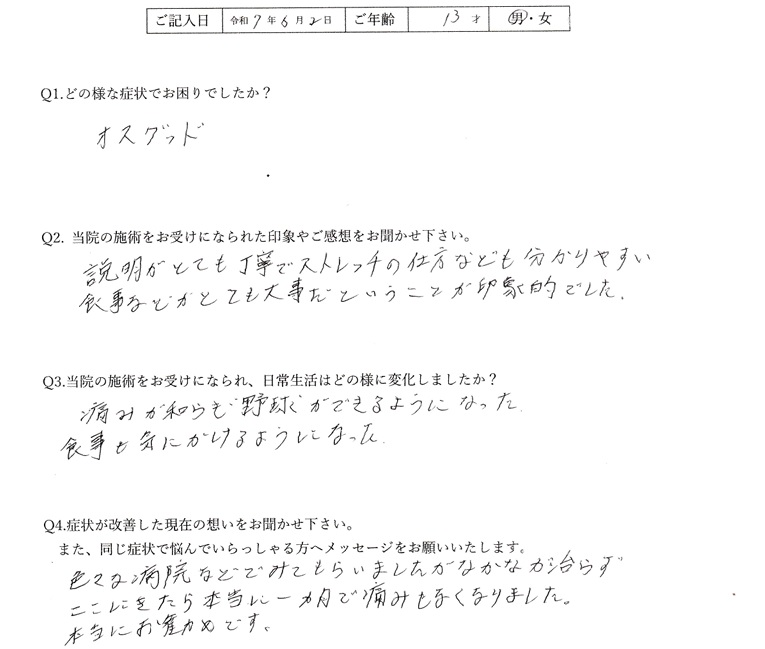 ご記入日 令和7年6月2日 ご年齢 13才 男・女
Q1.どの様な症状でお困りでしたか？
オスグッド
Q2. 当院の施術をお受けになられた印象やご感想をお聞かせ下さい。
説明がとても丁寧でストレッチの仕方なども分かりやすい
食事などがとても大事だということが印象的でした.
Q3.当院の施術をお受けになられ、日常生活はどの様に変化しましたか？
痛みが和らぎ野球ができるようになった.
食事も気にかけるようになった.
Q4.症状が改善した現在の想いをお聞かせ下さい。
また、同じ症状で悩んでいらっしゃる方へメッセージをお願いいたします。
色々な病院などでみてもらいましたがなかなか治らず
ここにきたら本当に一カ月で痛みもなくなりました。
本当にお薦めです。